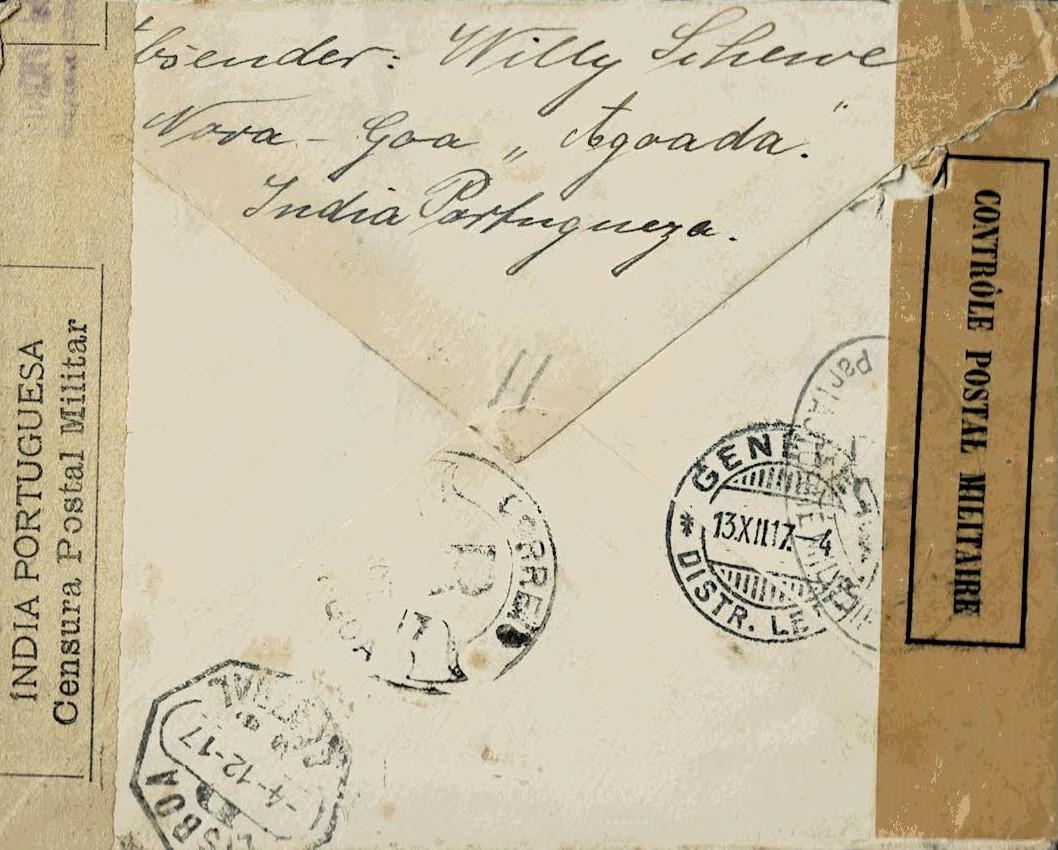 Absender: Willy Schewe
Nova-Goa „Agoada."
India Portugueza.
ÍNDIA PORTUGUESA
Censura Postal Militar
CONTRÔLE POSTAL MILITAIRE
11
CORREIO
R
GOA
GENÈ
13.XII.17.–4
* DISTR. LE
LISBOA
CENTRAL
-4-12-17